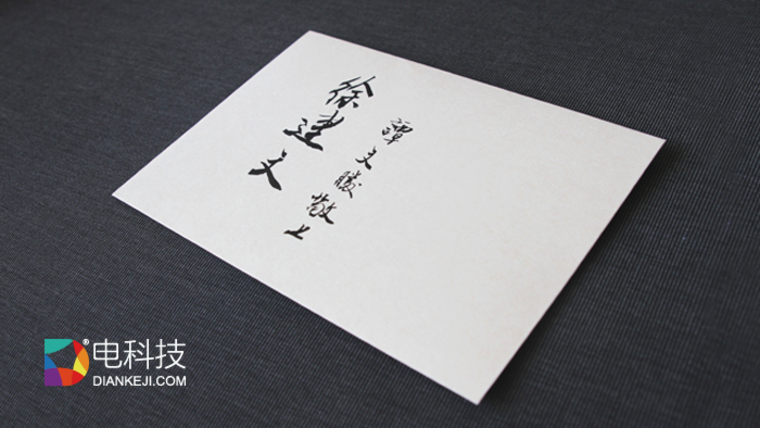 徐建文
譚文勝敬上
电科技
DIANKEJI.COM